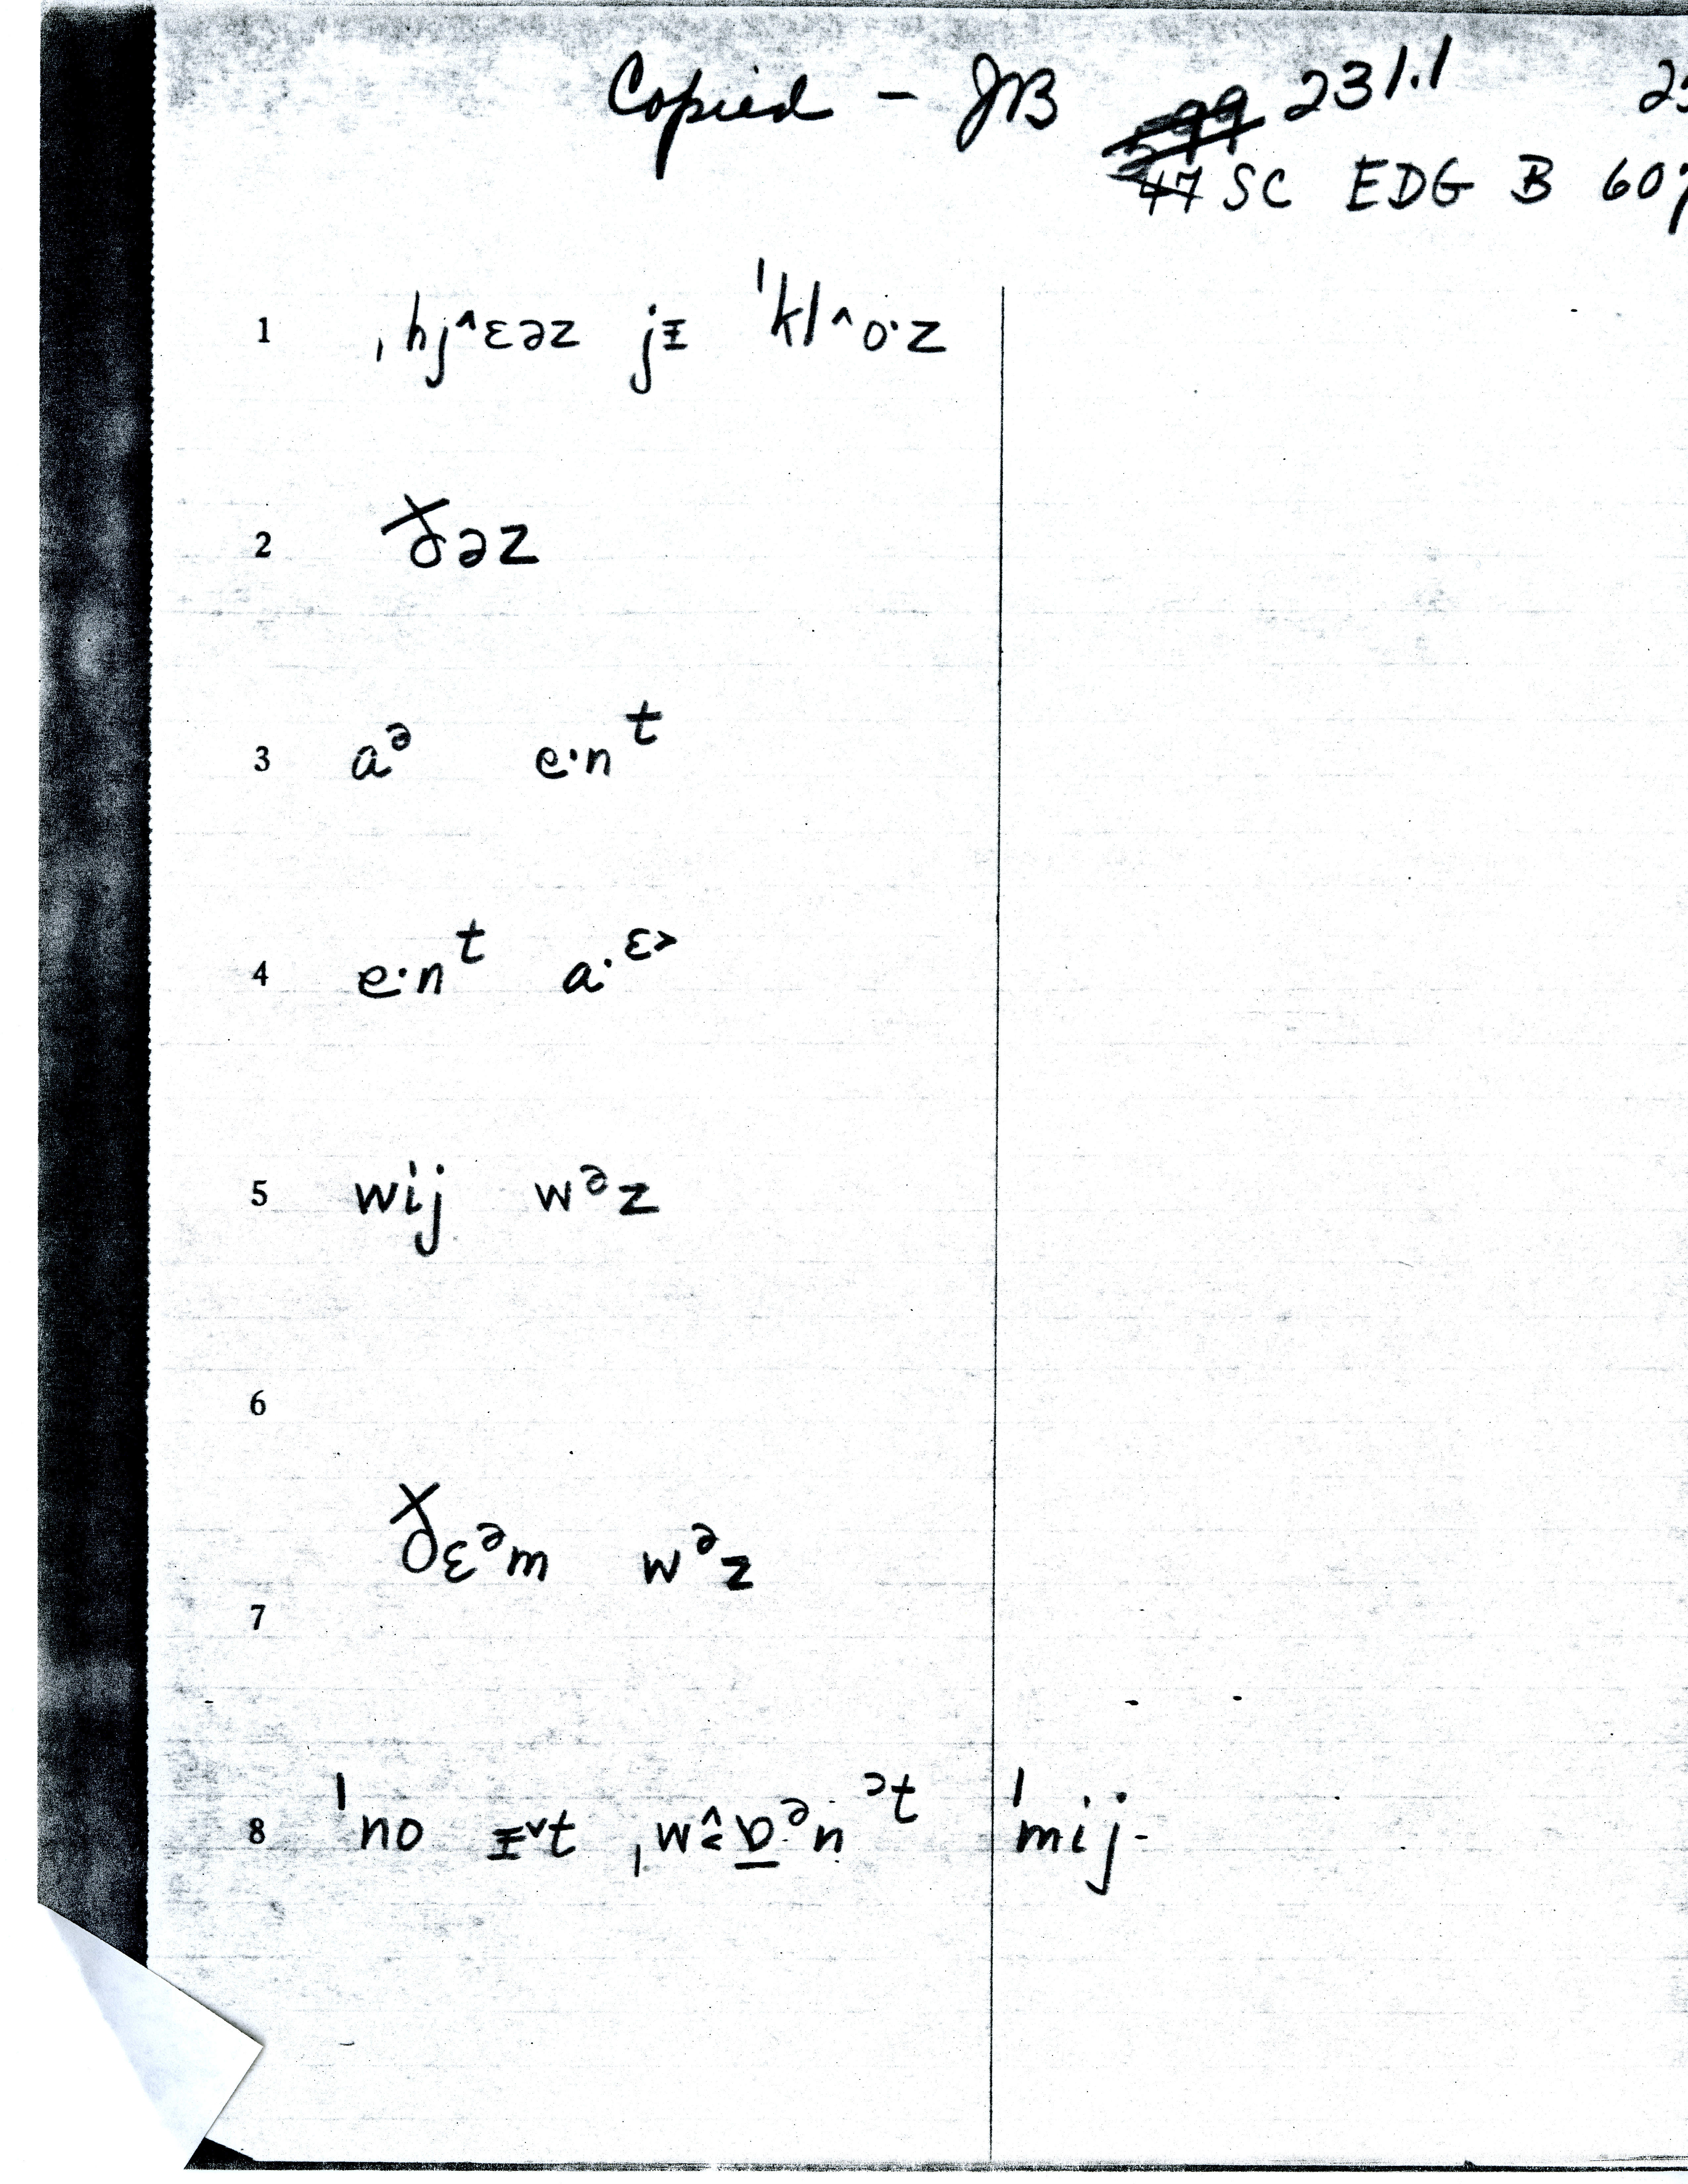 Copied - JB 599 231.1
47 SC EDG B 60
1 ˌhj^ɛəz jᵻ ˈkl^o·z
2 ðəz
3 aᵊ e·nᵗ
4 e·nᵗ a·ᵋ˃
5 wij wᵊz
6
ðɛᵊm wᵊz
7
8 ˈno ᵻ˅t ˌwɒ̭̂ᵊnᵊᵗ ˈmij-